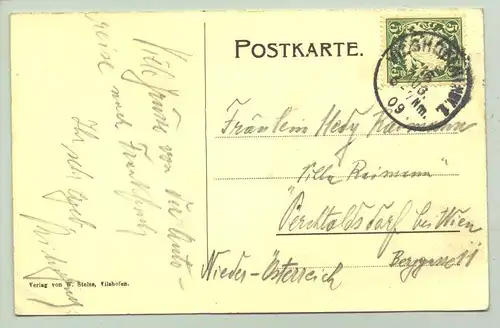 Viele Grüsse von der Auto-
reise nach Frankfurt
Ihr
POSTKARTE.
5 5
VILSHOFEN
09.
Nm.
Fräulein Hedy Raimann
"Villa Raimann"
Perchtoldsdorf bei Wien
Berggasse 11
Nieder-Österreich
Verlag von W. Stelze, Vilshofen.